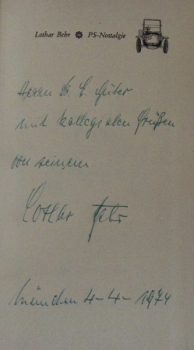 Lothar Behr ✽ PS-Nostalgie
Herrn
mit kollegialen Grüßen
von seinem
Lothar Behr
München 4-4-1974